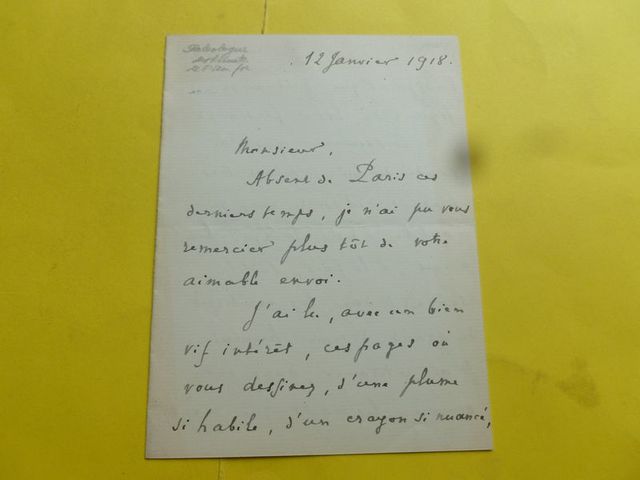 Paléologue
12 Janvier 1918.
Monsieur,
Absent de Paris ces
derniers temps, je n'ai pu vous
remercier plus tôt de votre
aimable envoi.
J'ai lu, avec un bien
vif intérêt, ces pages où
vous dessinez, d'une plume
si habile, d'un crayon si nuancé,